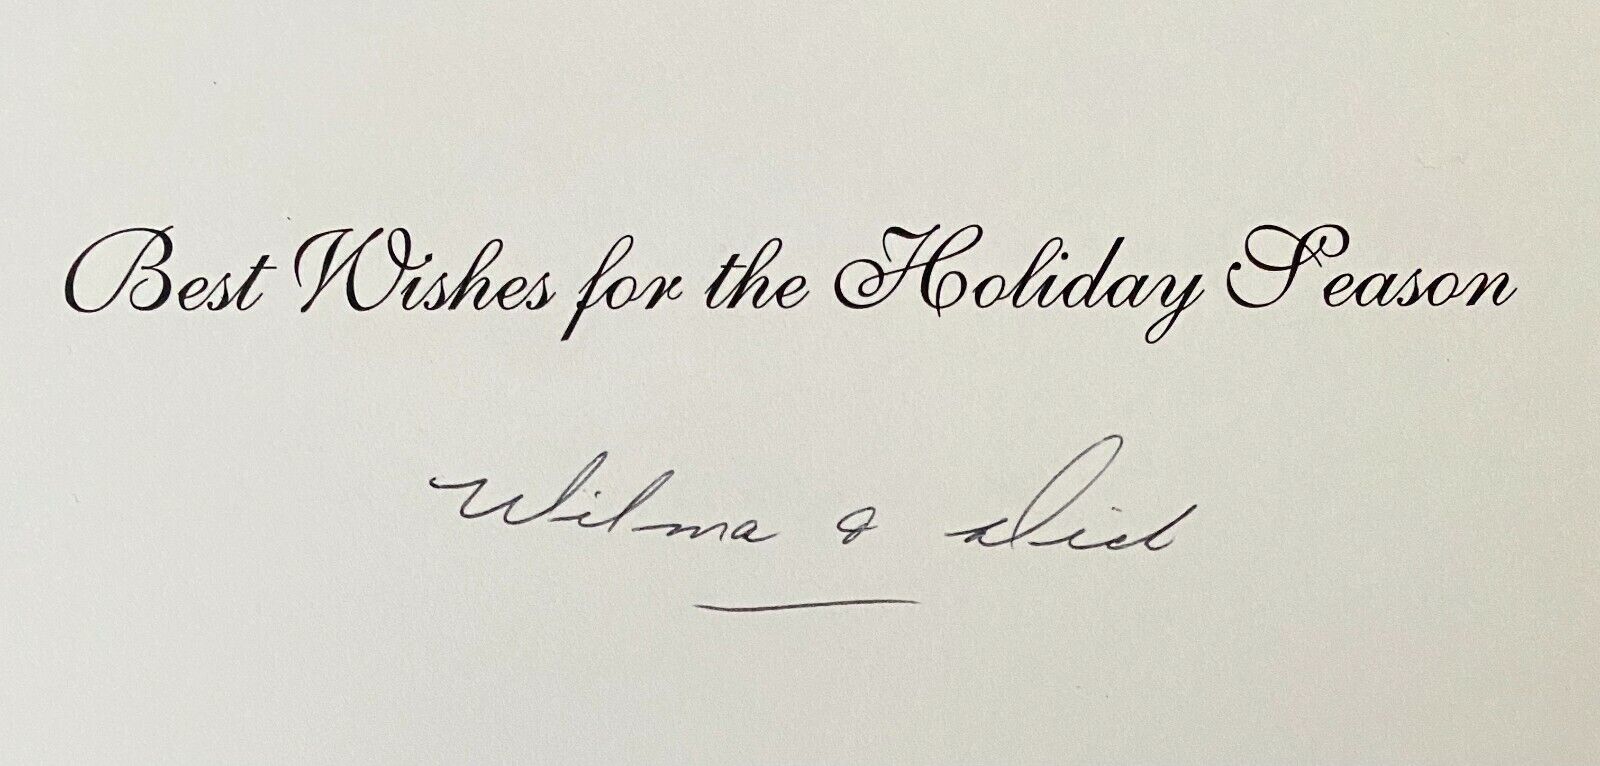 Best Wishes for the Holiday Season
Wilma & Dick